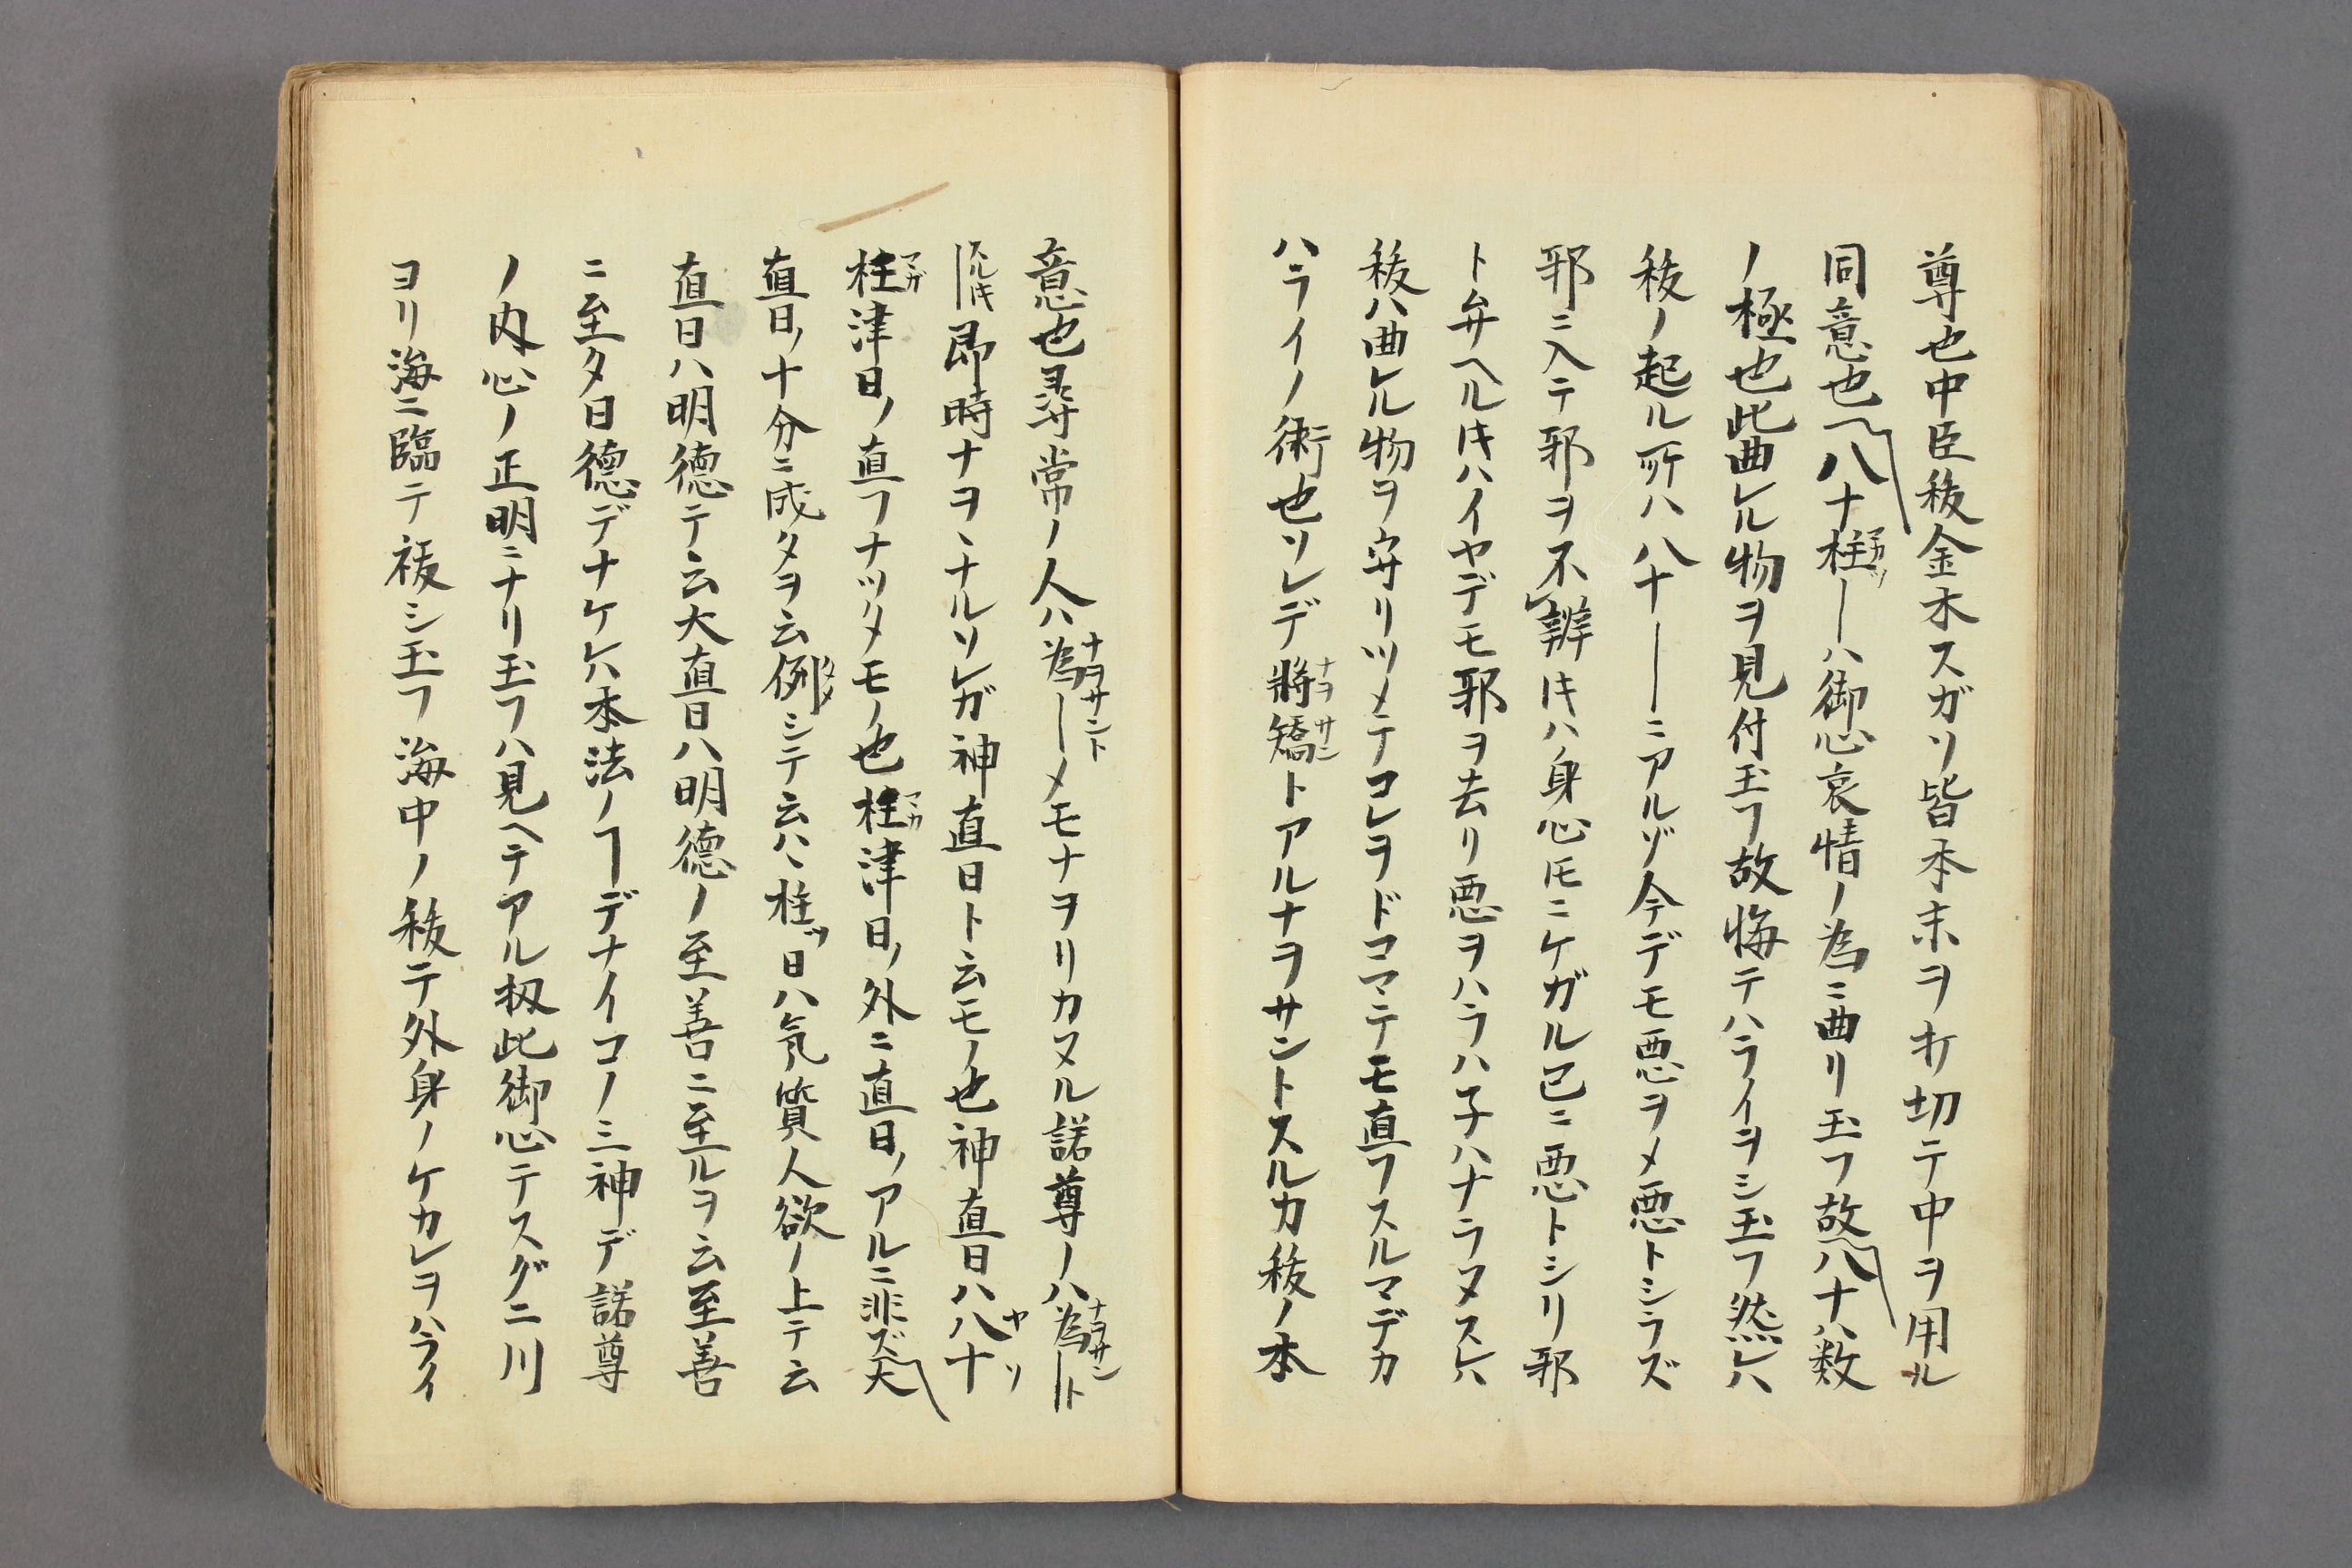 尊也中臣秡金木スガソ皆本末ヲ打切テ中ヲ用ル
同意也八十枉マカツ―ハ御心哀情ノ為ニ曲リ玉フ故八十ハ数
ノ極也此曲レル物ヲ見付玉フ故悔テハライヲシ玉フ然ㇾハ
秡ノ起ル所ハ八十――ニアルゾ今デモ悪ヲメ悪トシラズ
邪ニ入テ邪ヲ不レ辨𪜈ハ身心𪜈ニケガル已ニ悪トシリ邪
ト弁ヘル𪜈ハイヤデモ邪ヲ去リ悪ヲハラハ子ハナラヌスㇾハ
秡ハ曲レル物ヲ守リツメテコレヲドコマテモ直フスルマデカ
ハライノ術也ソレデ將矯ナヲサントアルナヲサントスルカ秡ノ本
意也尋常ノ人ハ為ナヲサント―メモナヲリカヌル諾尊ノハ為ナヲサン―ト
スル𪜈即時ナヲヽナルソレガ神直日ト云モノ也神直日ハ八十ヤソ
枉マガ津日ノ直フナツタモノ也枉マカ津日ノ外ニ直日ノアルニ非ズ大
直日ノ十分ニ成タヲ云例タメシテ云ハヽ枉ツ日ハ気質人欲ノ上テ云
直日ハ明徳テ云大直日ハ明徳ノ至善ニ至ルヲ云至善
ニ至タ日徳デナケㇾハ本法ノヿデナイコノ三神デ諾尊
ノ内心ノ正明ニナリ玉フハ見ヘテアル扨此御心テスグニ川
ヨリ海ニ臨テ祓シ玉フ海中ノ秡テ外身ノケカレヲハライ